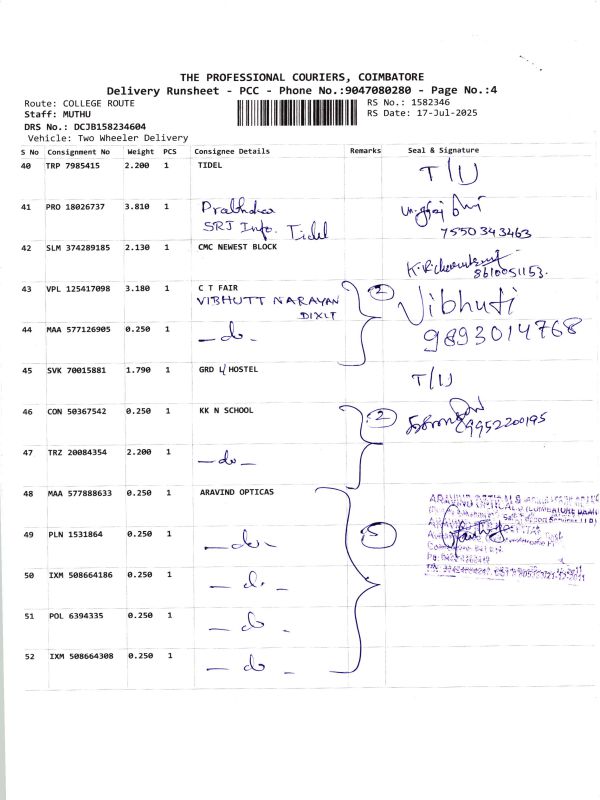 THE PROFESSIONAL COURIERS, COIMBATORE
Delivery Runsheet - PCC - Phone No.:9047080280 - Page No.:4
Route: COLLEGE ROUTE RS No.: 1582346
Staff: MUTHU RS Date: 17-Jul-2025
DRS No.: DCJB158234604
Vehicle: Two Wheeler Delivery
S No Consignment No Weight PCS Consignee Details Remarks Seal & Signature
40 TRP 7985415 2.200 1 TIDEL T/IJ
41 PRO 18026737 3.810 1 Prabhakar
SRJ Info. Tidel 7550343463
42 SLM 374289185 2.130 1 CMC NEWEST BLOCK
8610051153.
43 VPL 125417098 3.180 1 C T FAIR 2 Vibhuti
VIBHUTT NARAYAN
DIXIT 9893014768
44 MAA 577126905 0.250 1 - do -
45 SVK 70015881 1.790 1 GRD L/HOSTEL T/IJ
46 CON 50367542 0.250 1 KK N SCHOOL 2 9952200195
47 TRZ 20084354 2.200 1 - do -
48 MAA 577888633 0.250 1 ARAVIND OPTICAS
49 PLN 1531864 0.250 1 - do - 5
50 IXM 508664186 0.250 1 - do -
51 POL 6394335 0.250 1 - do -
52 IXM 508664308 0.250 1 - do -